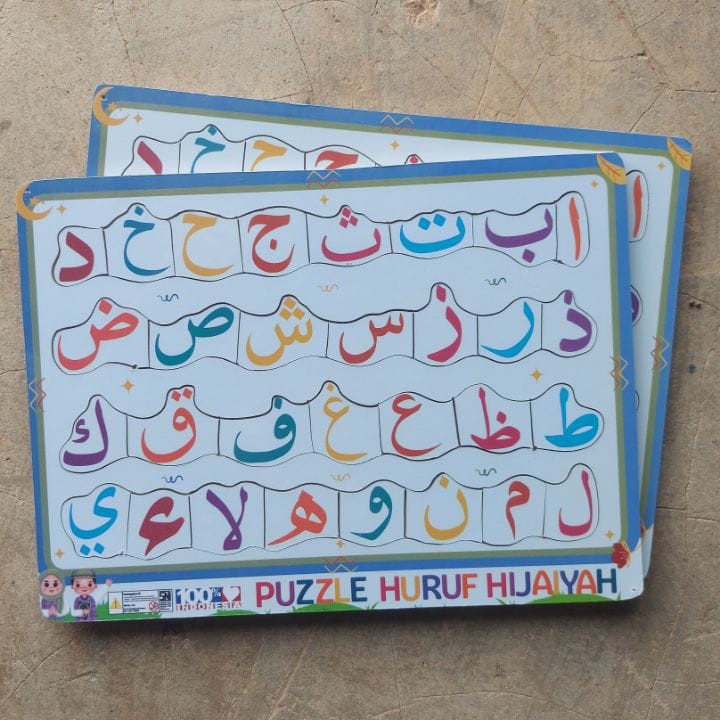 ا ب ت ث ج ح خ د
ذ ر ز س ش ص ض
ط ظ ع غ ف ق ك
ل م ن و ه لا ء ي
100% INDONESIA
PUZZLE HURUF HIJAIYAH